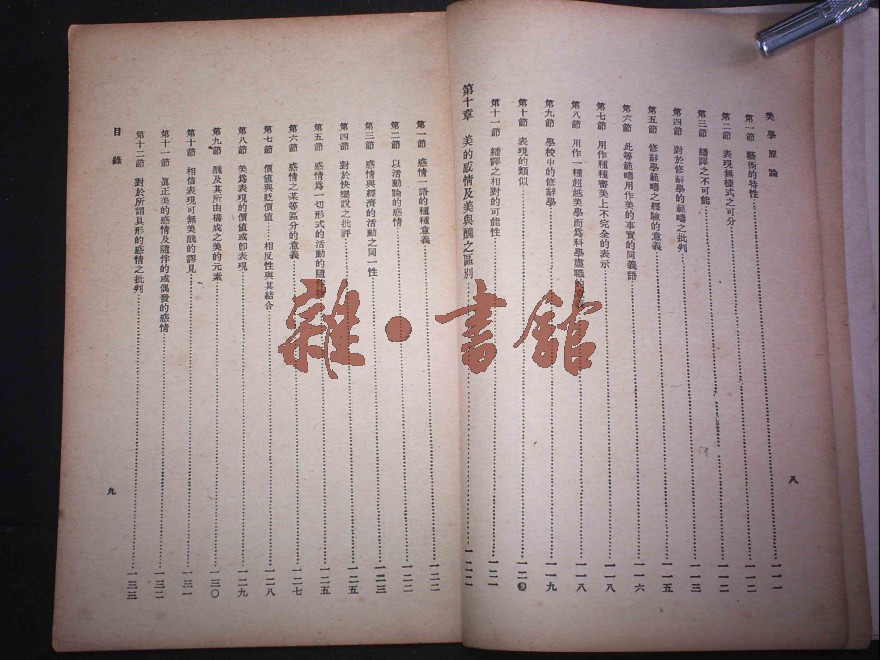 美學原論
第一節 藝術的特性……一一一
第二節 表現無樣式之可分……一一二
第三節 繙譯之不可能……一一三
第四節 對於修辭學的範疇之批判……一一三
第五節 修辭學範疇之經驗的意義……一一五
第六節 此等範疇用作美的事實的同義語……一一六
第七節 用作種種審美上不完全的表示……一一八
第八節 用作一種超越美學而爲科學盡職的……一一八
第九節 學校中的修辭學……一一九
第十節 表現的類似……一二〇
第十一節 繙譯之相對的可能性……一二一
第十章 美的感情及美與醜之區別……一二二
八
第一節 感情一語的種種意義……一二二
第二節 以活動論的感情……一二二
第三節 感情與經濟的活動之同一性……一二三
第四節 對於快樂說之批評……一二五
第五節 感情爲一切形式的活動的隨伴……一二五
第六節 感情之某等區分的意義……一二七
第七節 價值與貶價值……相反性與其結合……一二八
第八節 美爲表現的價值或卽表現……一二九
第九節 醜及其所由構成之美的元素……一三〇
第十節 相信表現可無美醜的謬見……一三一
第十一節 眞正美的感情及隨伴的或偶發的感情……一三二
第十二節 對於所謂具形的感情之批判……一三三
目錄
九
雜·書館